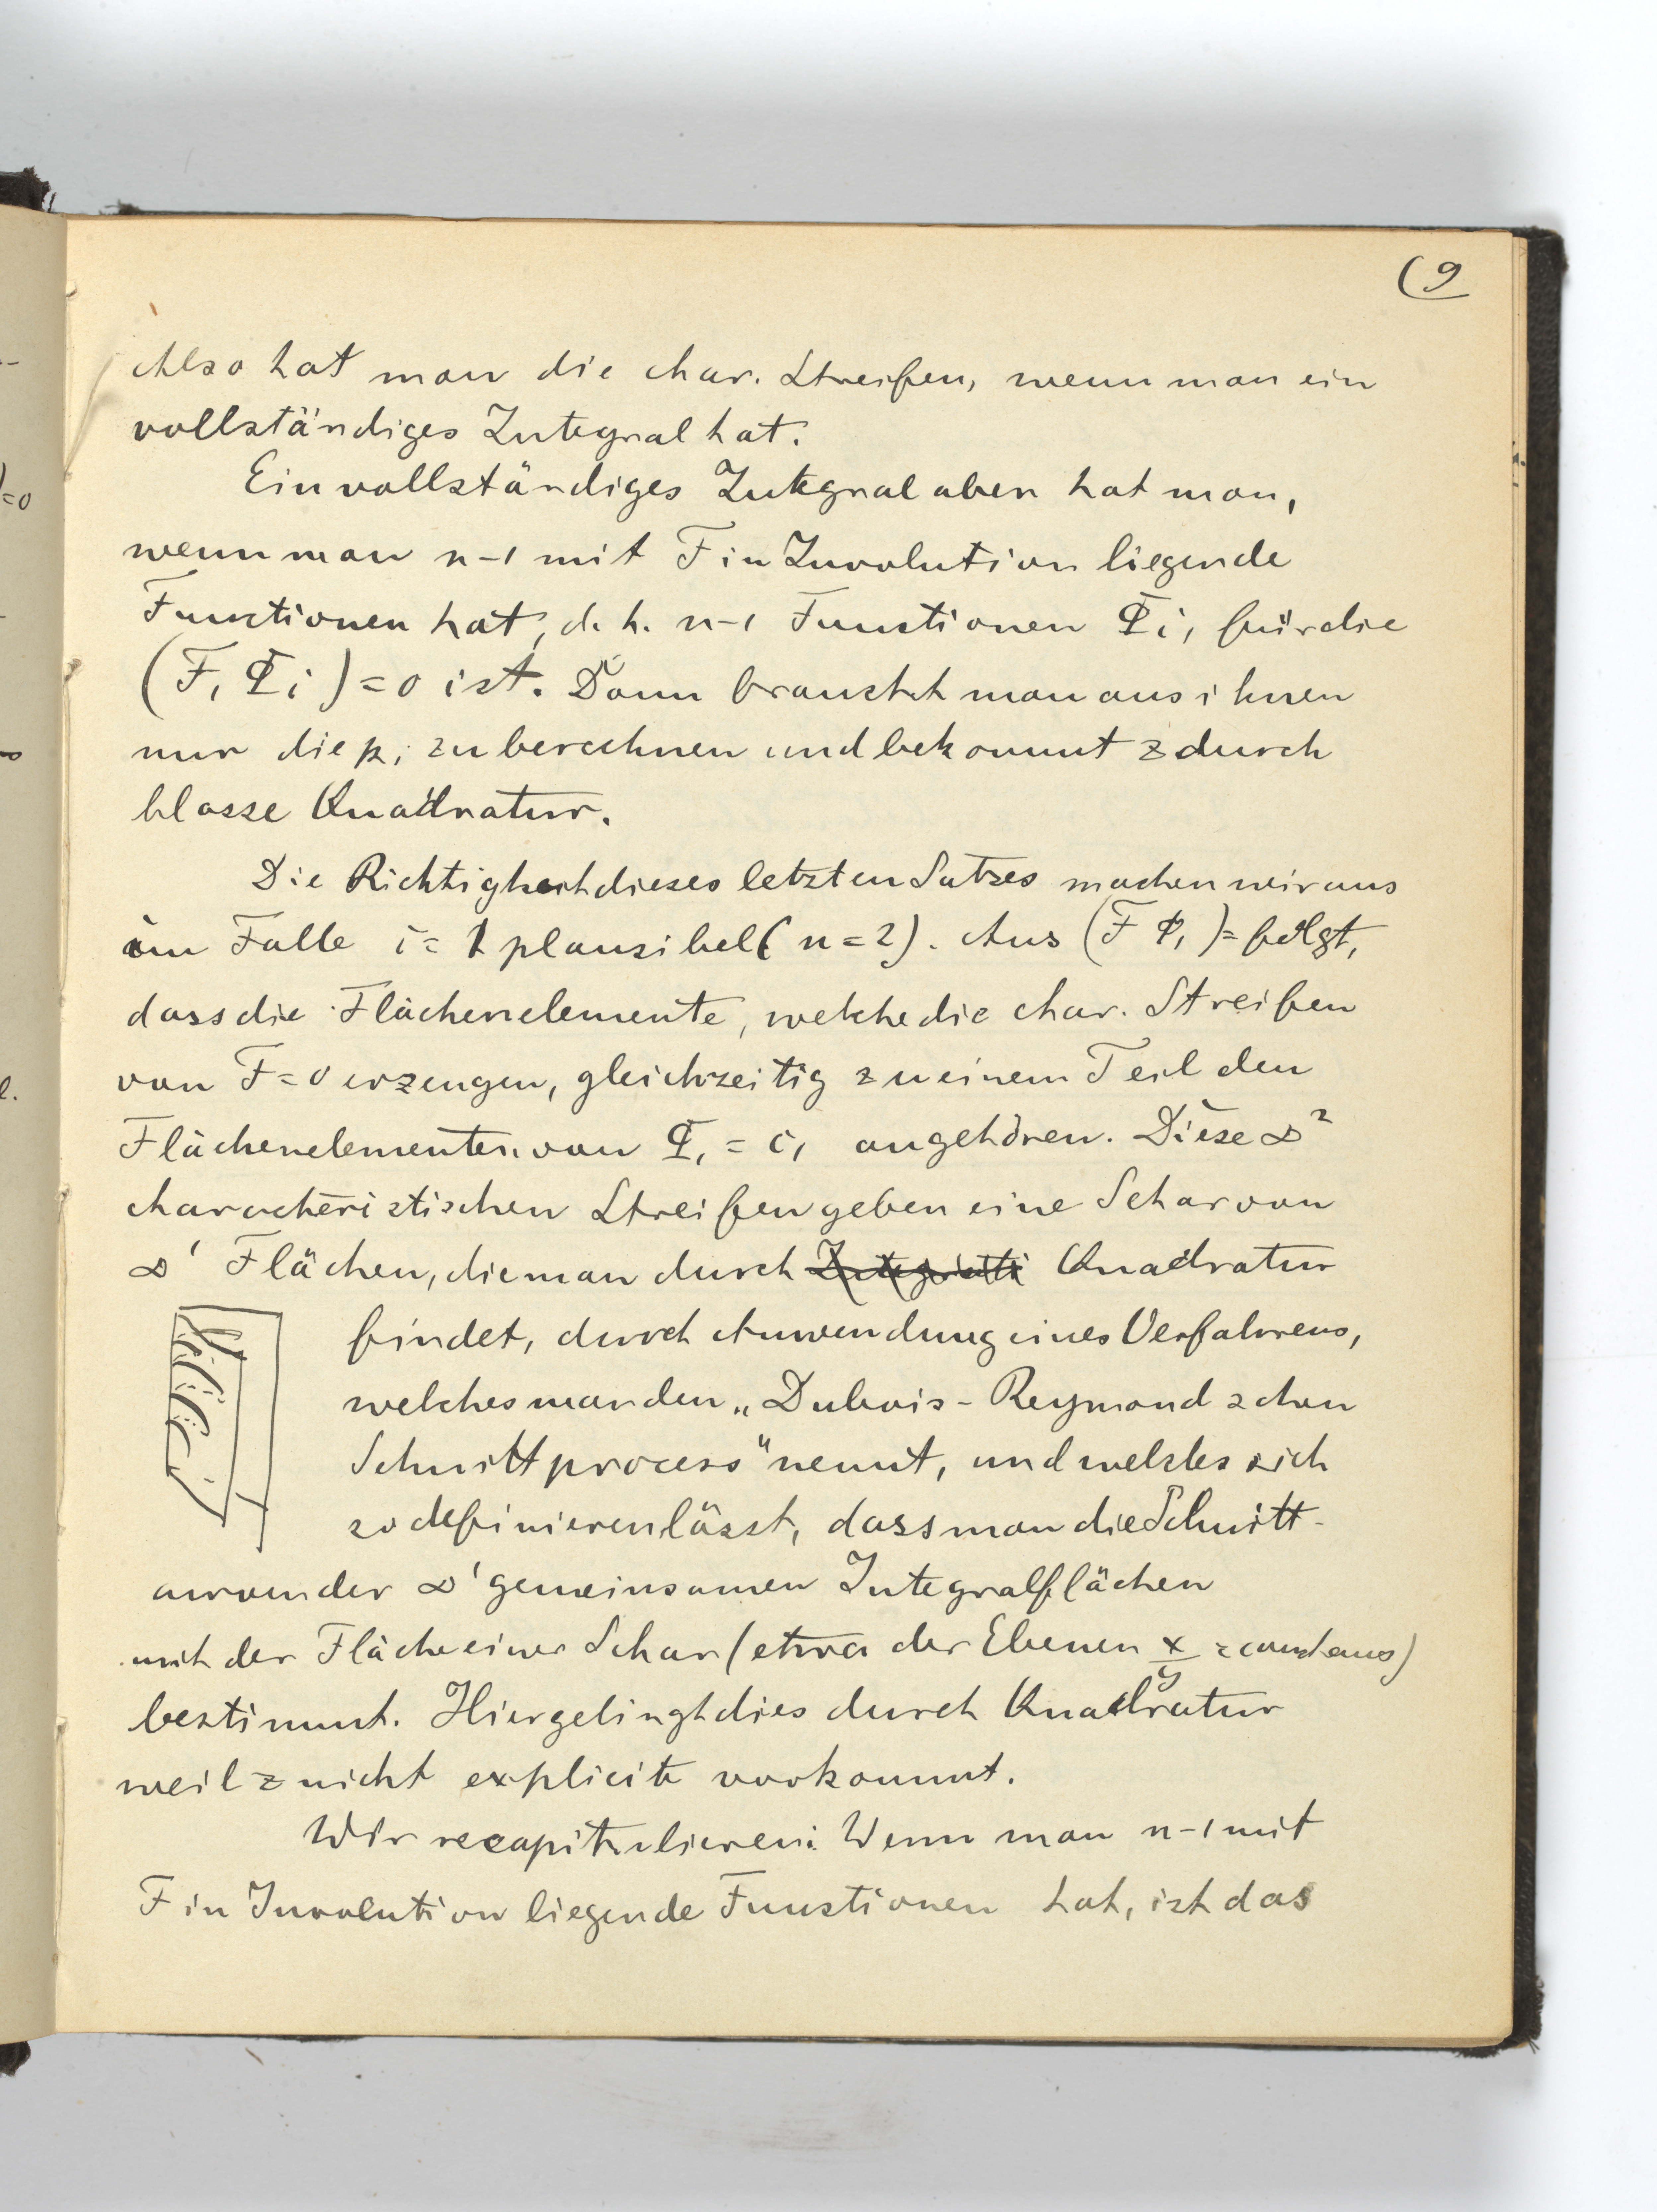 (9
Also hat man die char. Streifen, wenn man ein
vollständiges Integral hat.
Ein vollständiges Integral aber hat man,
wenn man n-1 mit F in Involution liegende
Functionen hat, d. h. n-1 Functionen Φi, für die
(F, Φi) = 0 ist. Dann braucht man aus ihnen
nur die pi zu berechnen und bekommt z durch
blosse Quadratur.
Die Richtigkeit dieses letzten Satzes machen wir uns
im Falle i = 1 plausibel (n = 2). Aus (F Φ1) = folgt,
dass die Flächenelemente, welche die char. Streifen
von F = 0 erzeugen, gleichzeitig zu einem Teil den
Flächenelementen von Φ1 = c1 angehören. Diese ∞²
characteristischen Streifen geben eine Schar von
∞¹ Flächen, die man durch Quadratur
findet, durch Anwendung eines Verfahrens,
welches man den „Dubois-Reymondschen
Schnittprocess" nennt, und welches sich
so definieren lässt, dass man die Schnitt-
der ∞¹ gemeinsamen Integralflächen
mit der Fläche einer Schar (etwa der Ebenen x/y =
bestimmt. Hier gelingt dies durch Quadratur
weil z nicht explicite vorkommt.
Wir recapitulieren: Wenn man n-1 mit
F in Involution liegende Functionen hat, ist das